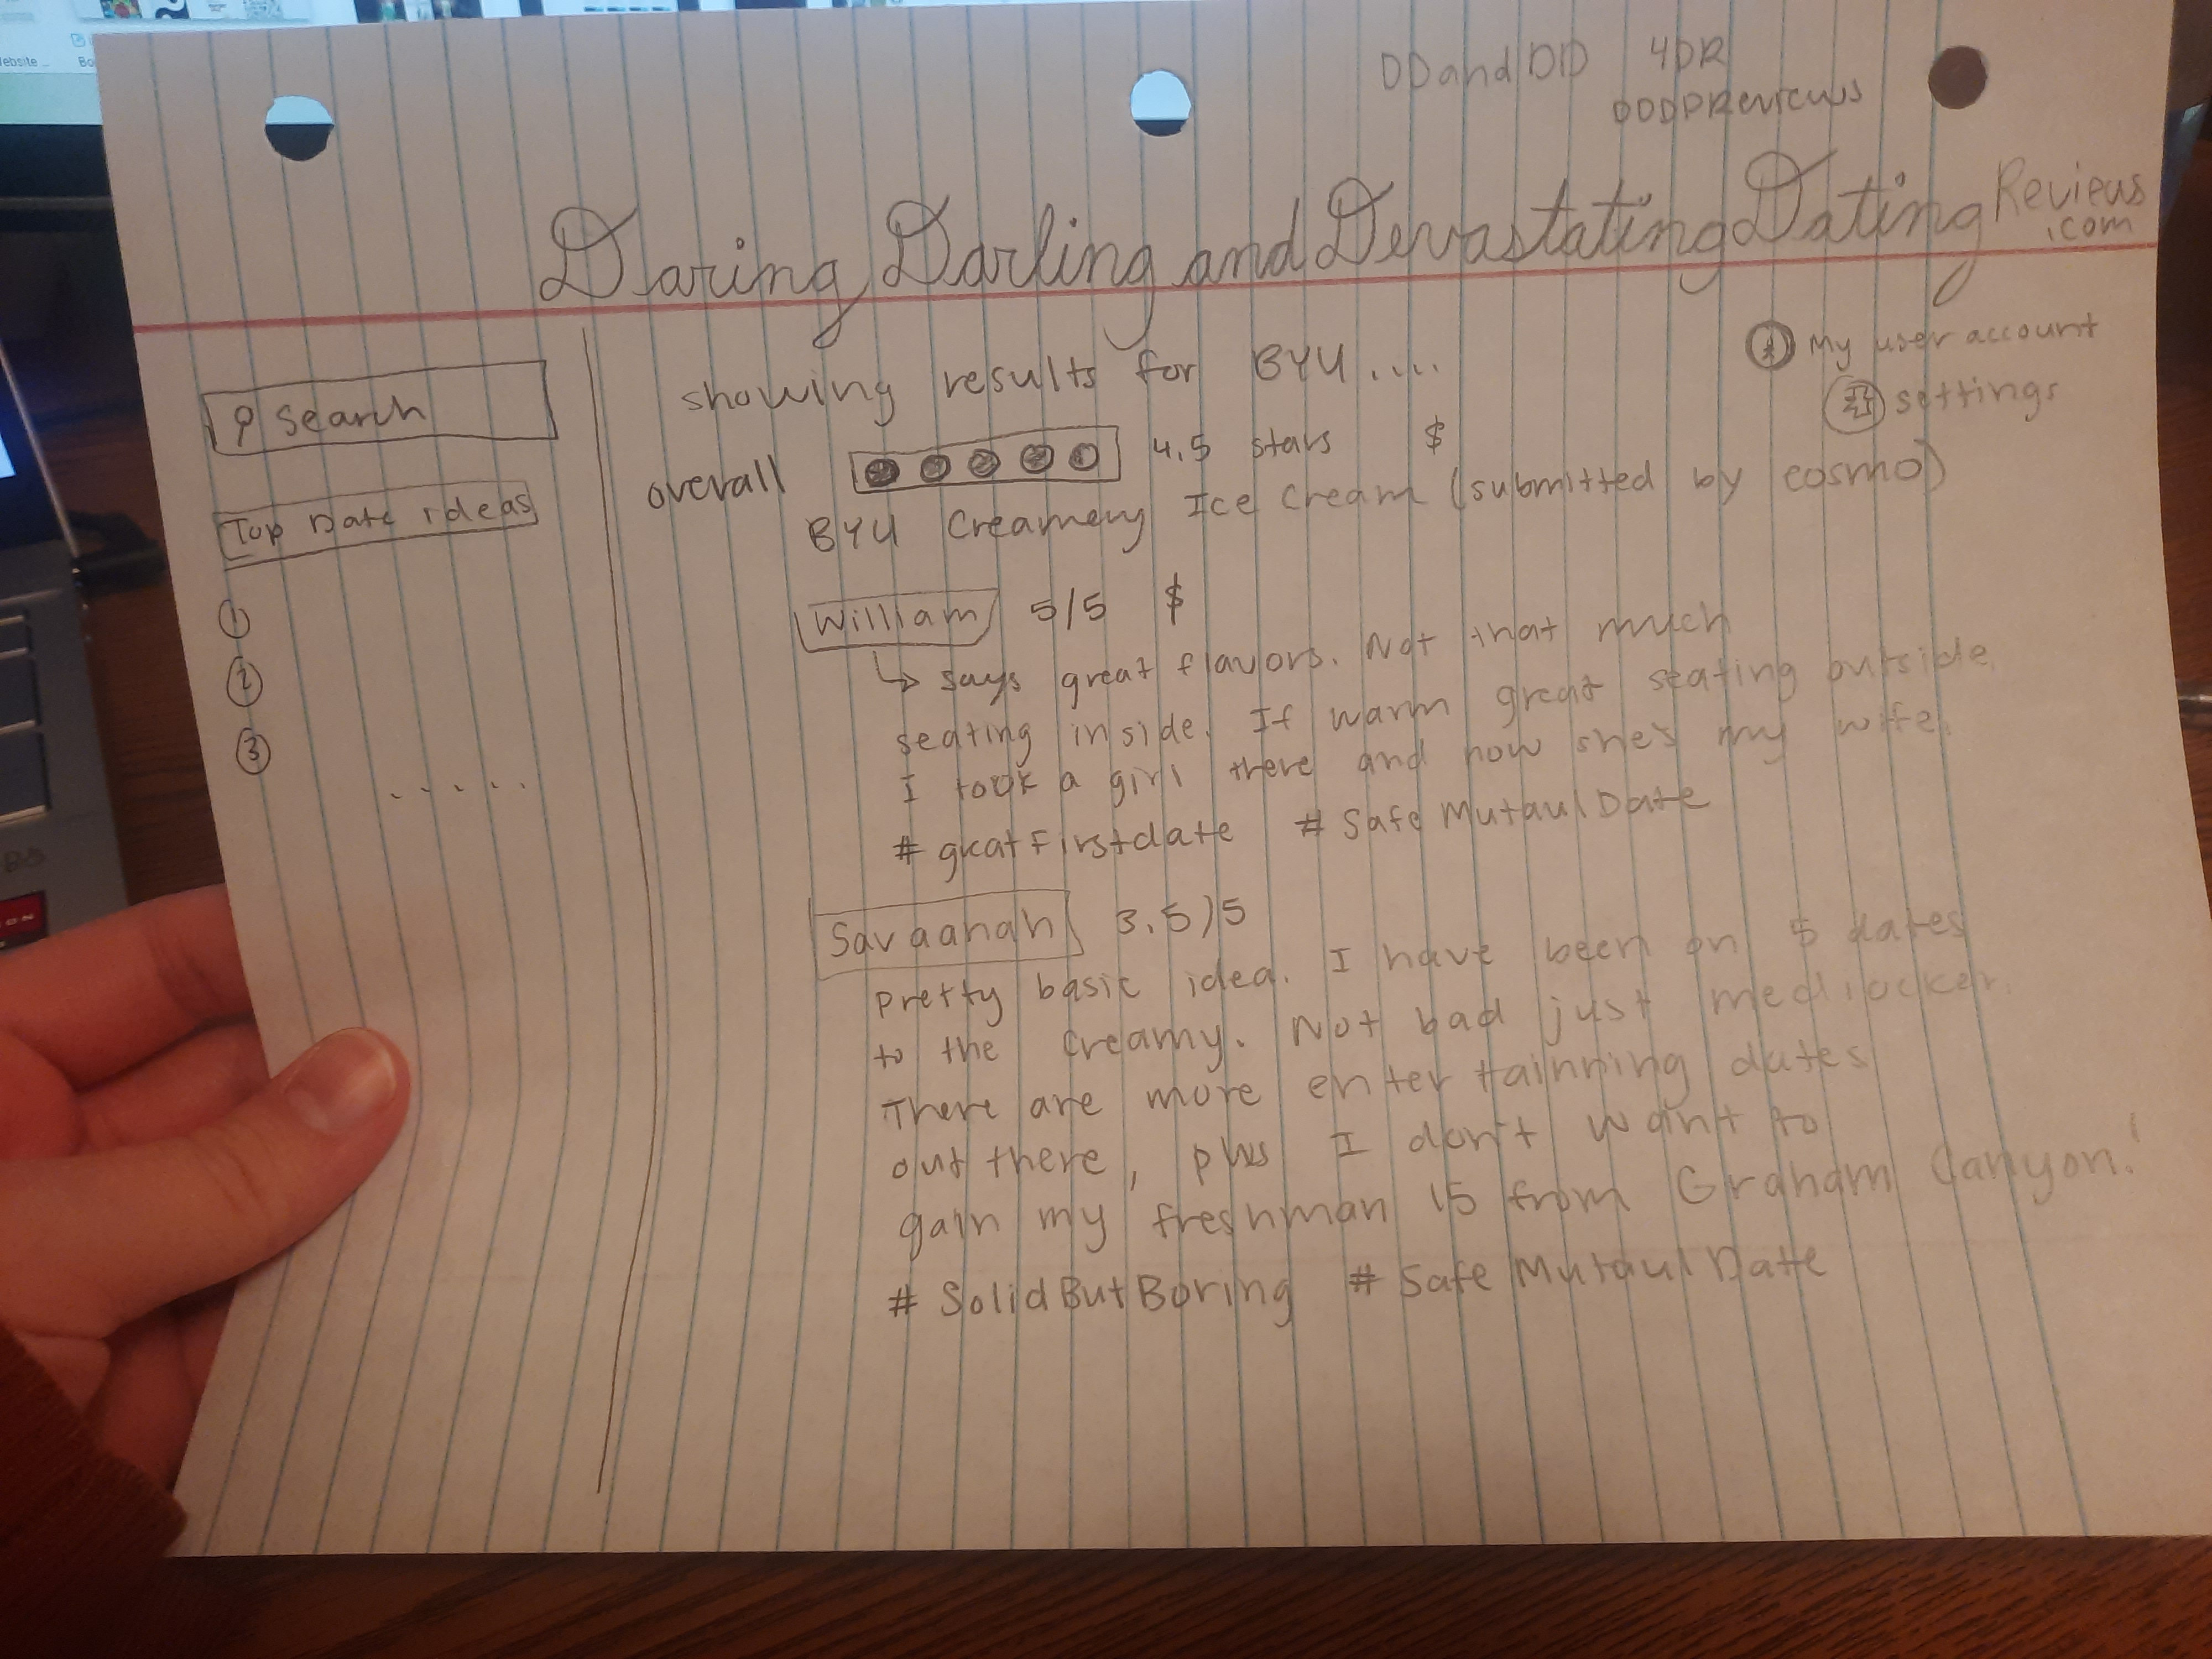 DDandDD 4DR
DDDDReviews
Daring Darling and Devastating Dating Reviews
.com
My user account
settings
Search
Top Date ideas
1
2
3
.....
showing results for BYU....
overall 4.5 stars $
BYU Creamery Ice Cream (submitted by cosmo)
William 5/5 $
↳ says great flavors. Not that much
seating inside. If warm great seating outside.
I took a girl there and now she's my wife.
# greatFirstdate # SafeMutaulDate
Savaanah 3.5/5
Pretty basic idea. I have been on 5 dates
to the creamy. Not bad just mediocker.
There are more entertainning dates
out there, plus I don't want to
gain my freshman 15 from Graham Canyon!
# SolidButBoring # SafeMutaulDate